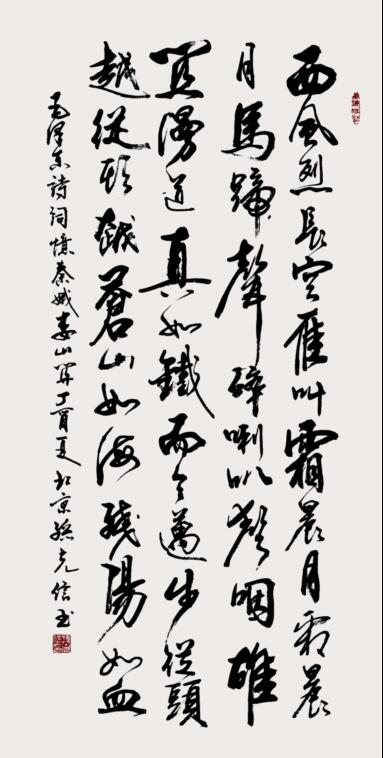 西風烈長空雁叫霜晨月霜晨
月馬蹄聲碎喇叭聲咽雄
関漫道真如鐵而今邁步從頭
越從頭越蒼山如海殘陽如血
毛澤东詩詞憶秦娥娄山関丁酉夏北京孫克信书